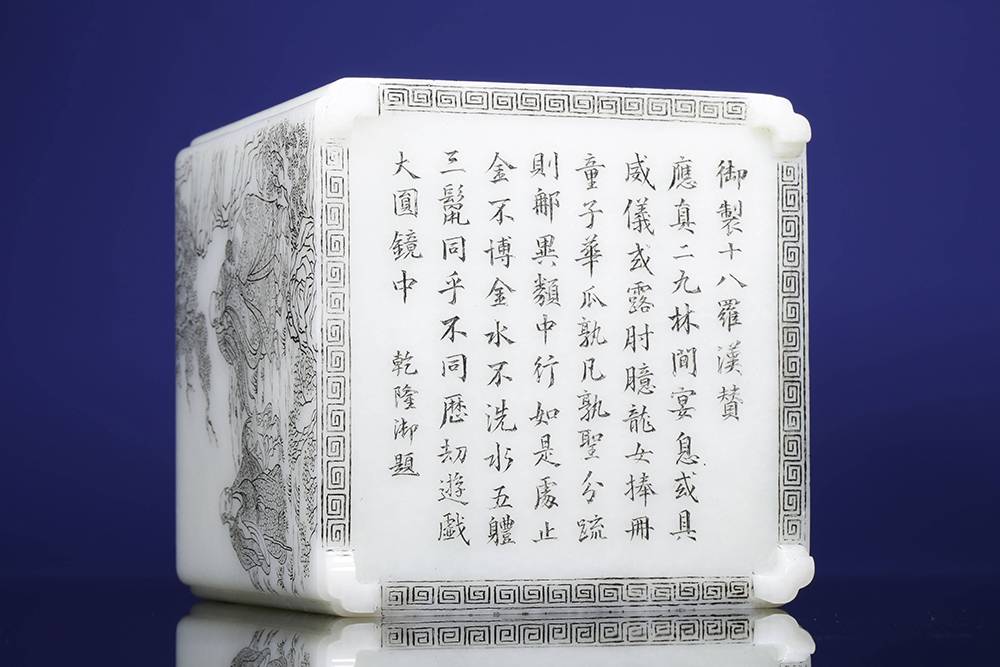 御製十八羅漢贊
應真二九林間宴息或具
威儀或露肘臆龍女捧冊
童子華瓜孰凡孰聖分疏
則鄰異類中行如是處止
金不博金水不洗水五體
三髯同乎不同歷劫遊戲
大圓鏡中 乾隆御題